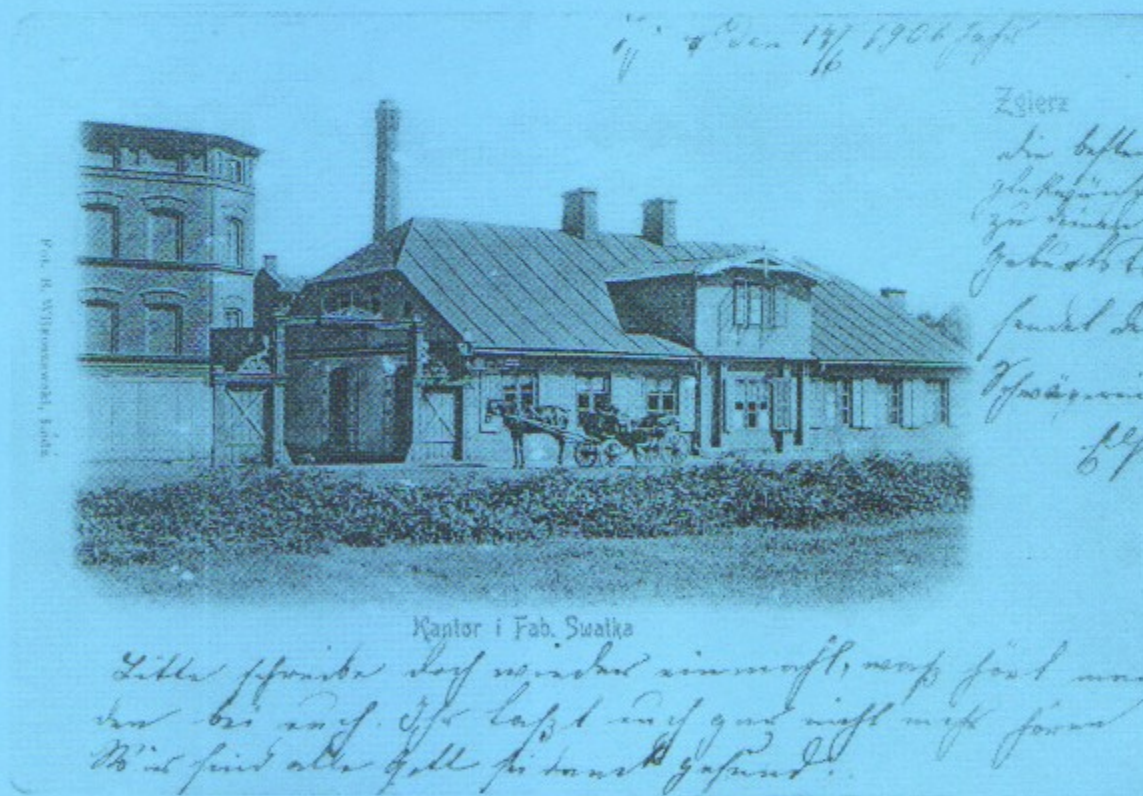 den 17/6 1906 Jahr
Zgierz
die besten
zu deinem
Geburtst
sendet de
Schwägerin
Fot. B. Wilkoszewski, Łódź.
Kantor i Fab. Swatka
Bitte schreibe doch wieder einmahl, waß hört ma
den bei euch. Ihr laßt euch gar nicht mehr hören
Wir sind alle Gott sei dank gesund.